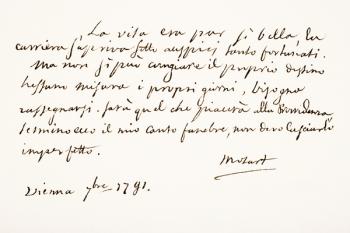 La vita era pur sì bella, la
carriera s'apriva sotto auspici tanto fortunati.
Ma non si può cangiare il proprio destino
nessuno misura i propri giorni, bisogna
rassegnarsi. sarà quel che piacerà alla Providenza
termino ecco il mio canto funebre, non devo lasciarlo
imperfetto.
Mozart
Vienna 7bre 1791.